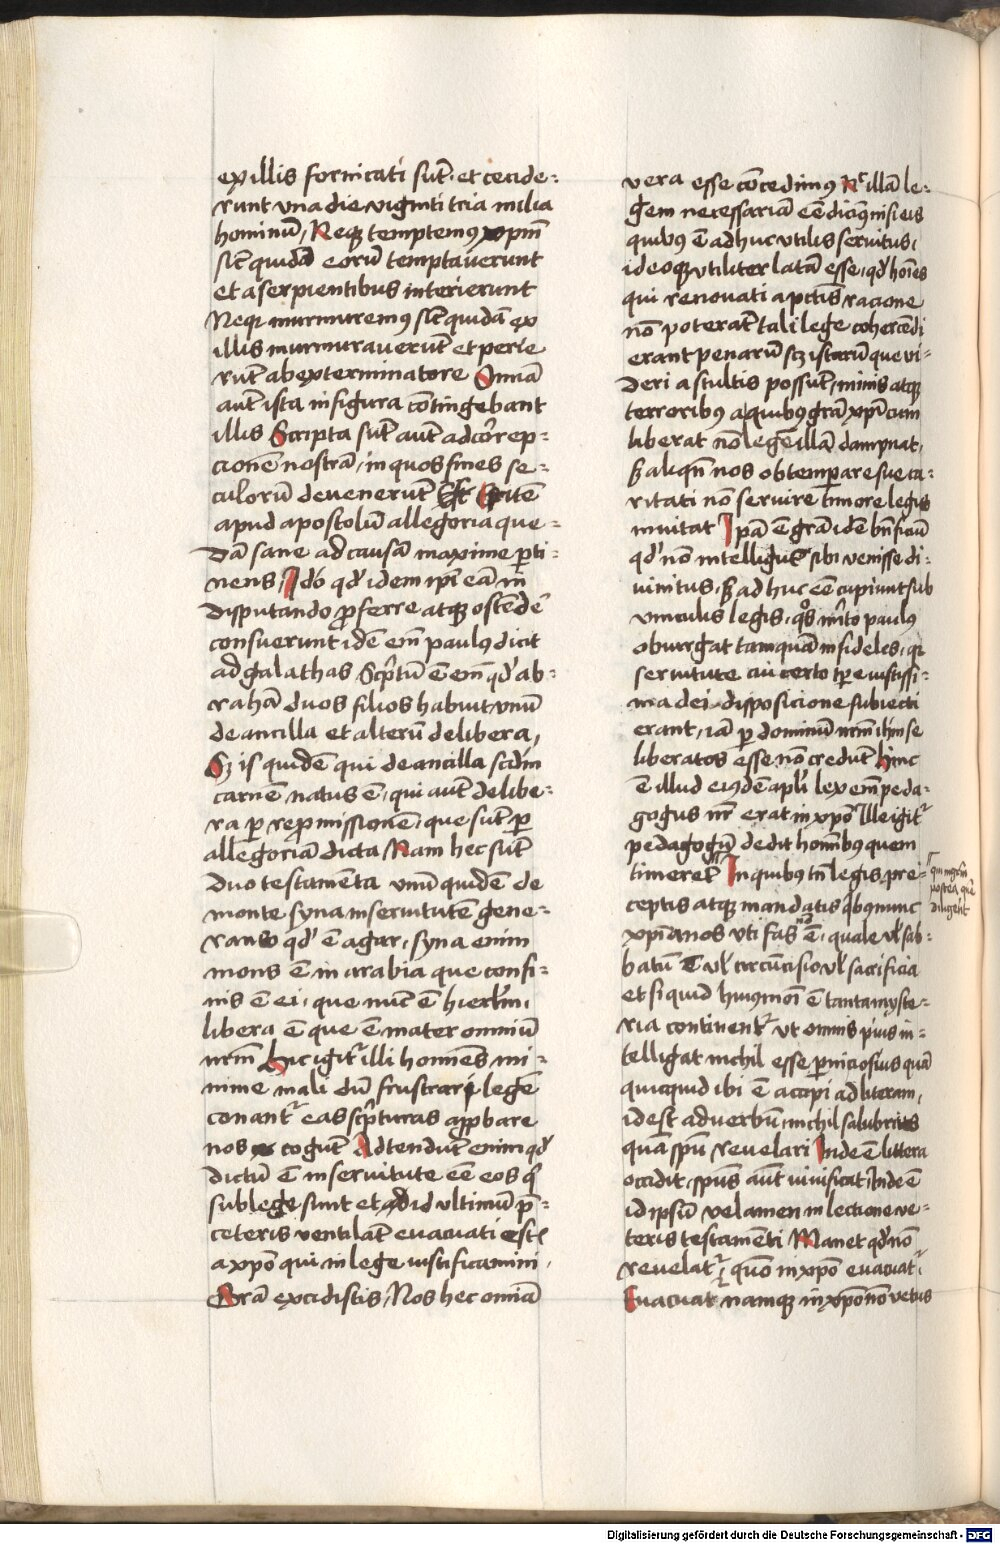 ex illis fornicati sūt. et cecide-
runt vna die viginti tria milia
hominū, Neq; temptemꝰ xp̄m
sic̄ quidā eorū temptauerunt
et a serpientibus interierunt
Neq; murmuremꝰ sic̄ quidā ex
illis murmurauerūt et perie
rūt ab exterminatore Omiā
aut̄ ista in figura cōtingebant
illis Scripta sūt aut̄ ad cōrep-
cionē nostrā, in quos fines se-
culorū deuenerūt Est itē
apud apostolū allegoria que-
dā sane ad causā maxime p̄ti-
nens, Ido qd' idem ip̄i eā in
disputando p̄ferre atq; ostēde
consuerunt idē em̄ paulꝰ dicit
ad galathas Scp̄tū ē em̄ qd' ab-
rahā duos filios habuit, vnū
de ancilla et alterū de libera,
Sꝫ is quidē qui de ancilla scd̄m
carnē natus ē, qui aut̄ de libe-
ra p repromissionē, que sūt p
allegoriā dicta Nam hec sūt
duo testamēta vnū quidē de
monte syna in seruitutē gene-
rans qd' ē agar, syna enim
mons ē in arabia que confi-
nis ē ei, que nūc ē hierl̄m,
libera ē que ē mater omniū
nr̄m Hic igit' illi homiēs mi-
nime mali dū frustrari legē
conant' eas sc̄pturas app̄bare
nos cogūt Adtendūt enim qd'
dictū ē in seruitute eē eos q̄
sub lege sunt et ad id vltimū p̄-
ceteris ventilāt euacuati estī
a xp̄o qui in lege iustificamini,
Grā excidistis, Nos hec omiā
vera esse cōcedimꝰ Nc̄ illā le-
gem necessariā eē dicimꝰ nisi eis
quibꝰ ē adhuc vtilis seruitus,
ideoq; vtiliter latā esse, qd' hoīes
qui renouati a pctīs racione
nō poterāt tali lege cohercēdi
erant penarū scꝫ istarū que vi-
deri a stultis possūt, minis atq;
terroribꝰ a quibꝰ grā xp̄i cum
liberat nō legē illā dampnat,
sꝫ aliqn̄ nos obtemperare sue ca-
ritati nō seruire timore legis
inuitat Ipā ē grā idē bn̄ficiū
qd' nō intelligūt sibi venisse di-
uinitus, sꝫ adhuc eē cupiunt sub
vinculis legis, qōs mr̄to paulꝰ
obiurgat tamquā infideles, qi
seruitute cui certo tp̄e iustissi-
ma dei disposicione subiecti
erant, iā p dominū nr̄m ih̄m se
liberatos esse nō credūt Hinc
ē illud eiusdē apl̄i lex em̄ peda-
gogus nr̄ erat in xp̄o Ille igit'
pedagogū dedit homībꝰ quem
timeret In quibꝰ tn̄ legis pre-
qui mgr̄m
postea quē
diligēt
ceptis atq; mandatis qbꝰ nunc
xp̄ianos vti fas nō ē, quale vl' sab-
batū ē vl' circūcisio vl' sacrificia
et si quid huiꝰmoī ē tanta myste-
ria continent' vt omnis pius in-
telligat nichil esse p̄niciosius quā
quicquid ibi ē accipi ad literam,
id est ad verbū, nichil salubrius
quā spū reuelari Inde ē littera
occidit, spūs aut̄ viuificat, Inde ē
id ipsū velamen in lectione ve-
teris testamēti Manet qd' nō
reuelat' quō in xp̄o euacuat'
Euacuat namq; in xp̄o nō vetus
Digitalisierung gefördert durch die Deutsche Forschungsgemeinschaft - DFG